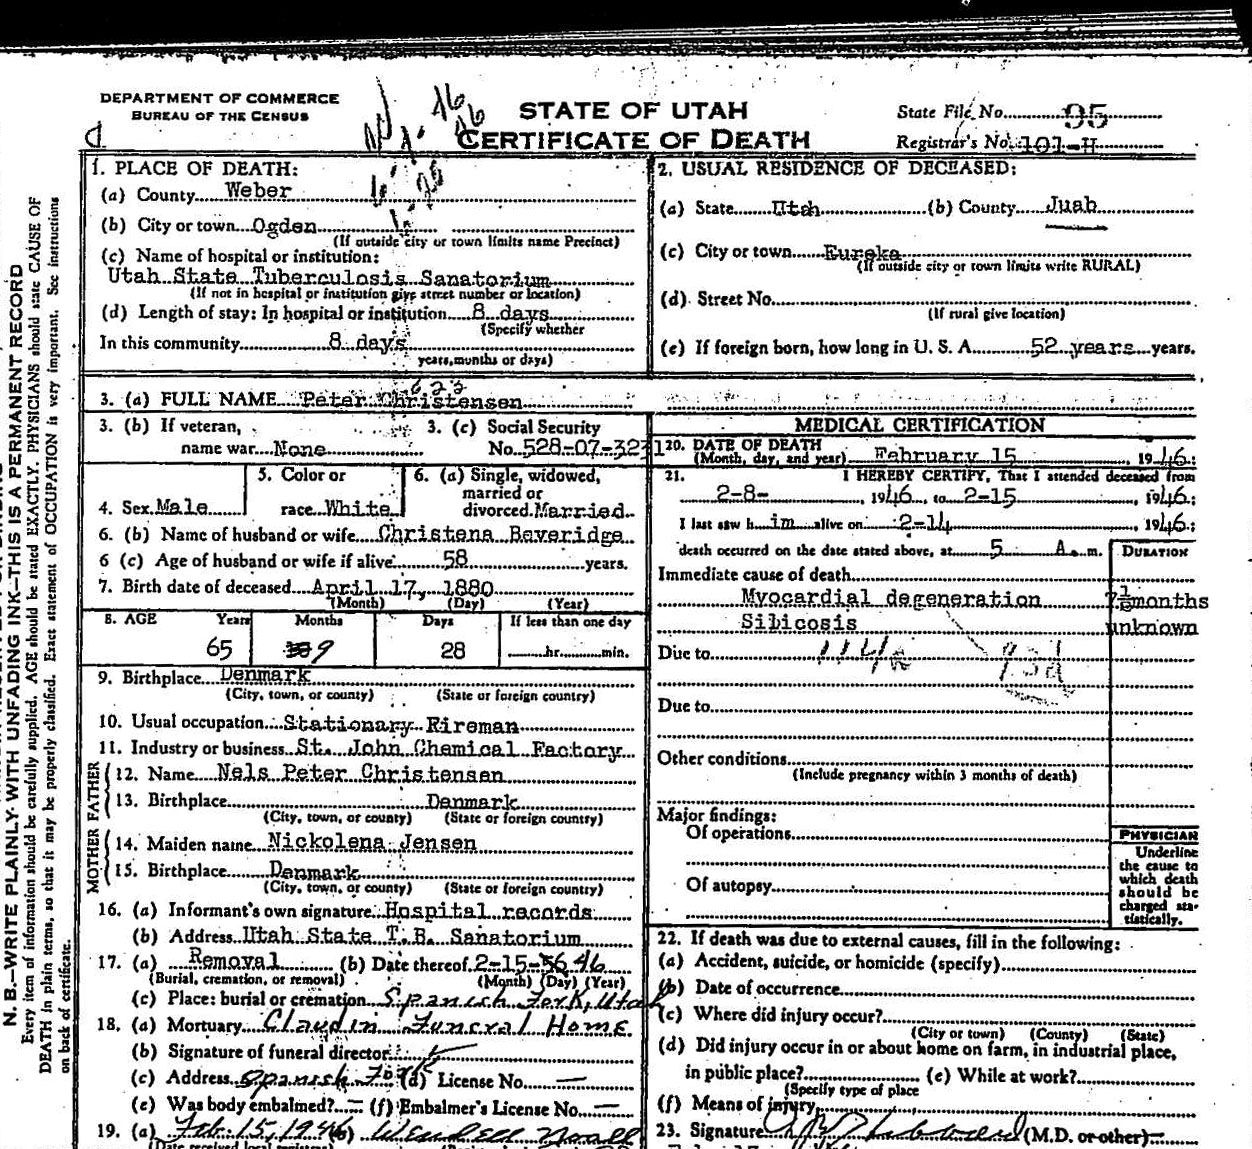 DEPARTMENT OF COMMERCE
BUREAU OF THE CENSUS
STATE OF UTAH
CERTIFICATE OF DEATH
State File No. 95
Registrar's No. 101-H
1. PLACE OF DEATH:
(a) County Weber
(b) City or town Ogden
(If outside city or town limits name Precinct)
(c) Name of hospital or institution:
Utah State Tuberculosis Sanatorium
(If not in hospital or institution give street number or location)
(d) Length of stay: In hospital or institution 8 days
(Specify whether
In this community 8 days
years, months or days)
2. USUAL RESIDENCE OF DECEASED:
(a) State Utah (b) County Juab
(c) City or town Eureka
(If outside city or town limits write RURAL)
(d) Street No.
(If rural give location)
(e) If foreign born, how long in U. S. A. 52 years years.
623
3. (a) FULL NAME Peter Christensen
3. (b) If veteran,
name war None
3. (c) Social Security
No. 528-07-3231
4. Sex Male
5. Color or
race White
6. (a) Single, widowed,
married or
divorced Married
6. (b) Name of husband or wife Christena Beveridge
6 (c) Age of husband or wife if alive 58 years.
7. Birth date of deceased April 17, 1880
(Month) (Day) (Year)
8. AGE Years Months Days If less than one day
65 9 28 hr. min.
9. Birthplace Denmark
(City, town, or county) (State or foreign country)
10. Usual occupation Stationary Fireman
11. Industry or business St. John Chemical Factory
FATHER
12. Name Nels Peter Christensen
13. Birthplace Denmark
(City, town, or county) (State or foreign country)
MOTHER
14. Maiden name Nickolena Jensen
15. Birthplace Denmark
(City, town, or county) (State or foreign country)
16. (a) Informant's own signature Hospital records
(b) Address Utah State T.B. Sanatorium
17. (a) Removal (b) Date thereof 2-15-46
(Burial, cremation, or removal) (Month) (Day) (Year)
(c) Place: burial or cremation Spanish Fork, Utah
18. (a) Mortuary Claudin Funeral Home
(b) Signature of funeral director
(c) Address Spanish Fork (d) License No. —
(e) Was body embalmed? — (f) Embalmer's License No. —
19. (a) Feb. 15, 1946 (b) Wendell Noall
(Date received local registrar)
MEDICAL CERTIFICATION
20. DATE OF DEATH
(Month, day, and year) February 15, 1946
21. I HEREBY CERTIFY, That I attended deceased from
2-8-, 1946, to 2-15, 1946
I last saw him alive on 2-14, 1946
death occurred on the date stated above, at 5 A. m.
DURATION
Immediate cause of death
Myocardial degeneration 7½ months
Silicosis unknown
Due to 114a 93d
Due to
Other conditions
(Include pregnancy within 3 months of death)
Major findings:
Of operations
Of autopsy
PHYSICIAN
Underline
the cause to
which death
should be
charged sta-
tistically.
22. If death was due to external causes, fill in the following:
(a) Accident, suicide, or homicide (specify)
(b) Date of occurrence
(c) Where did injury occur?
(City or town) (County) (State)
(d) Did injury occur in or about home on farm, in industrial place,
in public place? (e) While at work?
(Specify type of place
(f) Means of injury
23. Signature (M.D. or other)
N. B.—WRITE PLAINLY WITH UNFADING INK—THIS IS A PERMANENT RECORD
Every item of information should be carefully supplied. AGE should be stated EXACTLY. PHYSICIANS should state CAUSE OF
DEATH in plain terms, so that it may be properly classified. Exact statement of OCCUPATION is very important. See instructions
on back of certificate.